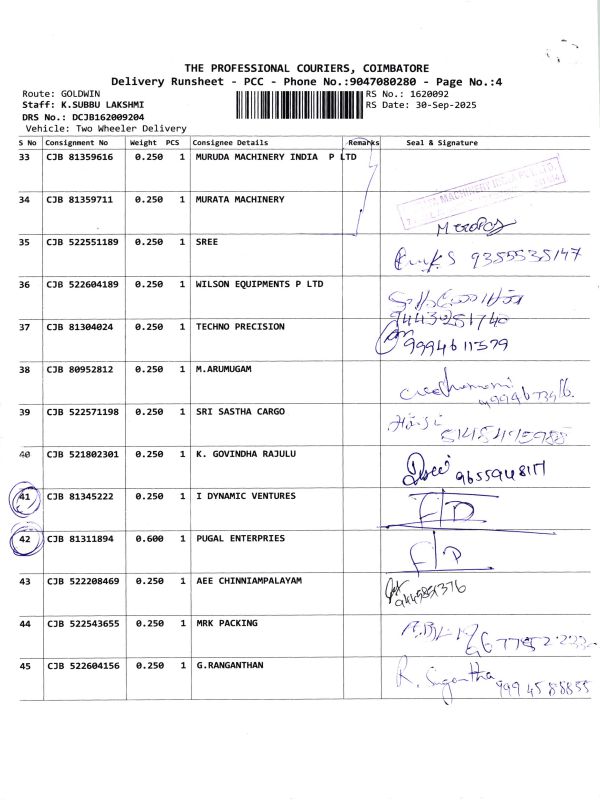 THE PROFESSIONAL COURIERS, COIMBATORE
Delivery Runsheet - PCC - Phone No.:9047080280 - Page No.:4
Route: GOLDWIN
RS No.: 1620092
Staff: K.SUBBU LAKSHMI
RS Date: 30-Sep-2025
DRS No.: DCJB162009204
Vehicle: Two Wheeler Delivery
S No Consignment No Weight PCS Consignee Details Remarks Seal & Signature
33 CJB 81359616 0.250 1 MURUDA MACHINERY INDIA P LTD
34 CJB 81359711 0.250 1 MURATA MACHINERY
35 CJB 522551189 0.250 1 SREE 9355535147
36 CJB 522604189 0.250 1 WILSON EQUIPMENTS P LTD
9443251740
37 CJB 81304024 0.250 1 TECHNO PRECISION
9994611579
38 CJB 80952812 0.250 1 M.ARUMUGAM
39 CJB 522571198 0.250 1 SRI SASTHA CARGO
40 CJB 521802301 0.250 1 K. GOVINDHA RAJULU
41 CJB 81345222 0.250 1 I DYNAMIC VENTURES F/D
42 CJB 81311894 0.600 1 PUGAL ENTERPRIES F/D
43 CJB 522208469 0.250 1 AEE CHINNIAMPALAYAM
44 CJB 522543655 0.250 1 MRK PACKING
45 CJB 522604156 0.250 1 G.RANGANTHAN R. Sugantha 9994588855